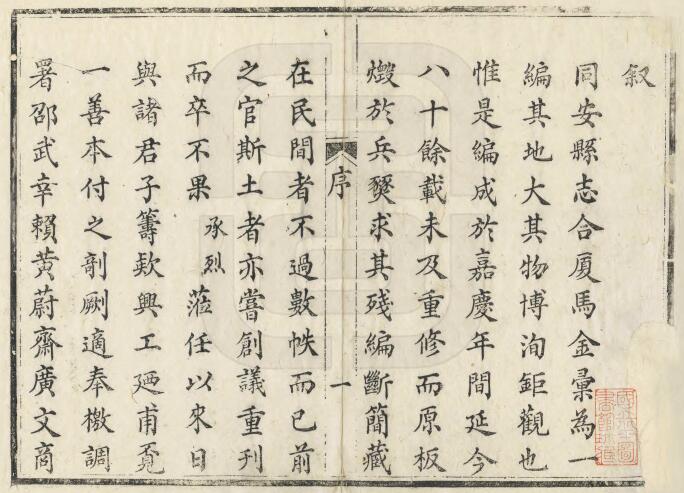 叙
同安縣志合厦馬金彙為一
編其地大其物博洵鉅觀也
惟是編成於嘉慶年間延今
八十餘載未及重修而原板
燬於兵燹求其殘編斷簡藏
序
一
在民間者不過數帙而已前
之官斯土者亦嘗創議重刊
而卒不果承烈蒞任以來日
與諸君子籌欵興工廼甫覔
一善本付之剞劂適奉檄調
署邵武幸賴黃蔚齋廣文商